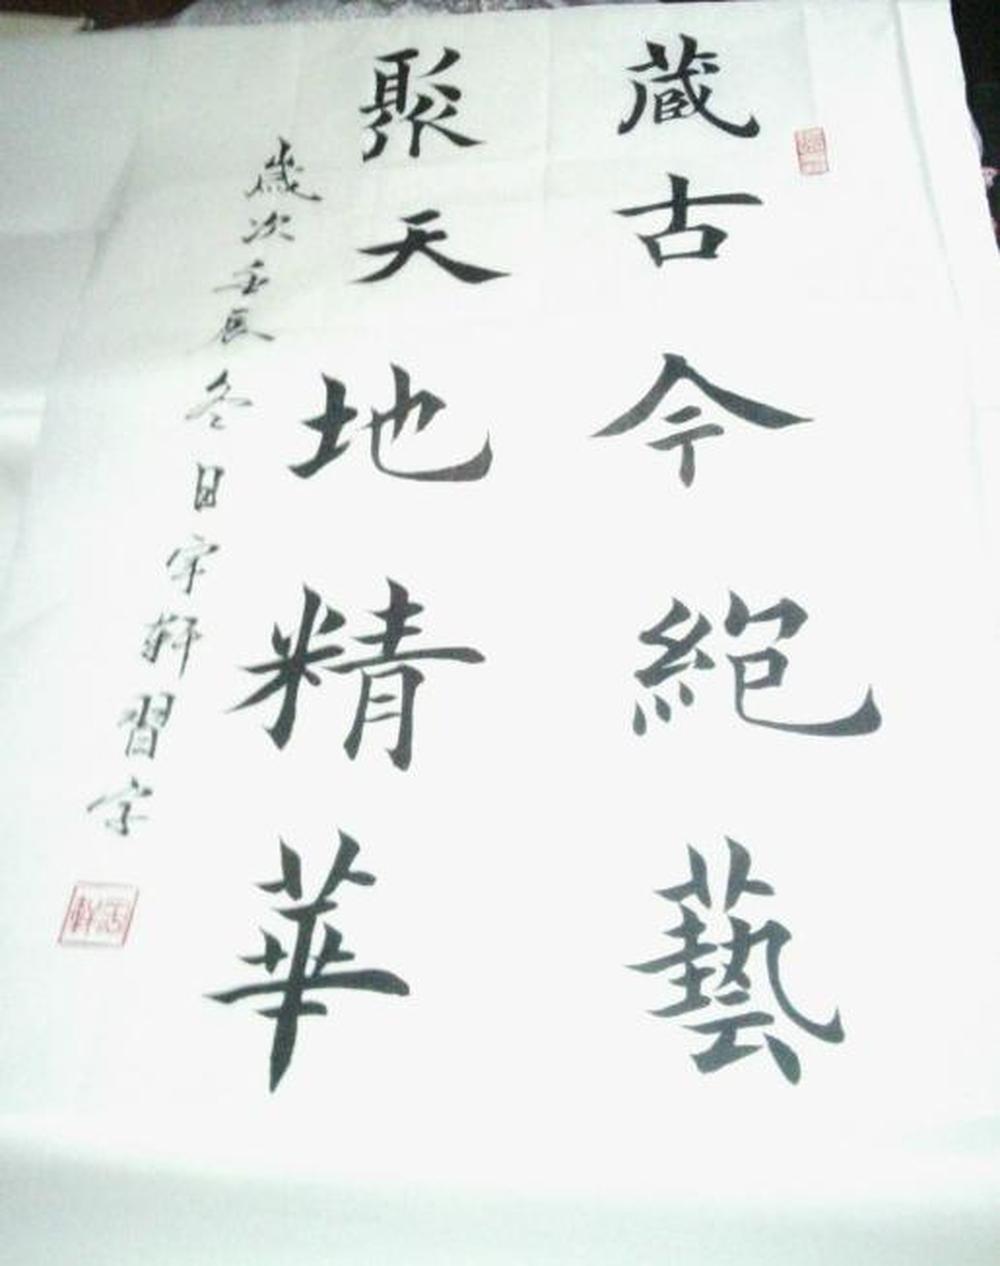 藏古今絕藝
聚天地精華
歲次壬辰冬日宇軒習字